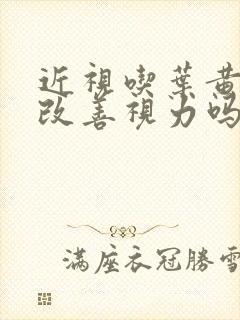 近視喫葉黃
改善視力吗
滿座衣冠勝雪